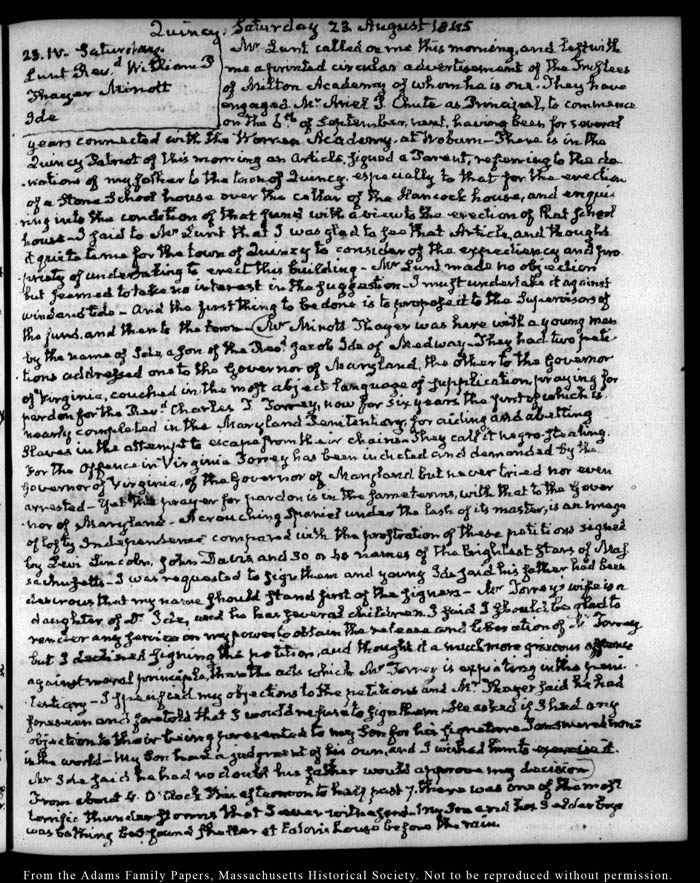 Quincy. Saturday 23 August 1845
23. IV. Saturday.
Lunt Rev.d William P
Thayer Minott
Ide
Mr Lunt called on me this morning, and left with
me a printed circular advertisement of the Trustees
of Milton Academy of whom he is one. They have
engaged Mr Ariel P. Chute as Principal, to commence
on the 6th of September, next, having been for several
years connected with the Warren Academy, at Woburn – There is in the
Quincy Patriot of this morning an Article, signed a Parent, referring to the do-
nations of my father to the town of Quincy, especially to that for the erection
of a Stone School house over the cellar of the Hancock house, and enqui-
ring into the condition of that fund with a view to the erection of that School
house – I said to Mr Lunt that I was glad to see that Article, and thought
it quite time for the town of Quincy to consider of the expediency and pro-
priety of undertaking to erect this building – Mr Lunt made no objection
but seemed to take no interest in the suggestion – I must undertake it against
wind and tide – And the first thing to be done is to propose it to the Supervisors of
the fund, and then to the town – Mr Minott Thayer was here with a young man
by the name of Ide, a son of the Revd Jacob Ide of Medway – They had two peti-
tions addressed one to the Governor of Maryland, the other to the Governor
of Virginia, couched in the most abject language of supplication, praying for
pardon for the Revd Charles T. Torrey, now for six years the first of which is
nearly completed in the Maryland Penitentiary, for aiding and abetting
Slaves in the attempt to escape from their chains – They call it negro-stealing.
For the Offence in Virginia Torrey has been indicted and demanded by the
Governor of Virginia, of the Governor of Maryland but never tried nor even
arrested – Yet the prayer for pardon is in the same terms, with that to the Gover
nor of Maryland – A crouching Spaniel under the lash of its master, is an image
of lofty Independence compared with the prostration of these petitions signed
by Levi Lincoln, John Davis and 30 or 40 names of the brightest Stars of Mas
sachusetts – I was requested to sign them and young Ide said his father had been
desirous that my name should stand first of the signers – Mr Torrey's wife is a
daughter of Dr Ide, and he has several children. I said I should be glad to
render any service in my power to obtain the release and liberation of Mr Torrey
but I declined signing the petition, and thought it a much more grievous offence
against moral principle, than the acts which Mr Torrey is expiating in the peni-
tentiary – I specified my objections to the petitions and Mr Thayer said he had
foreseen and foretold that I would refuse to sign them. He asked if I had any
objection to their being presented to my Son for his signature I answered none
in the world – My Son had a judgment of his own, and I wished him to exercise it.
Mr Ide said he had no doubt his father would approve my decision
From about 4. O'Clock this afternoon to half past 7. there was one of the most
terrific thunder storms that I ever witnessed. My Son and his 3 elder boys
was bathing but found shelter at house before the rain.
From the Adams Family Papers, Massachusetts Historical Society. Not to be reproduced without permission.